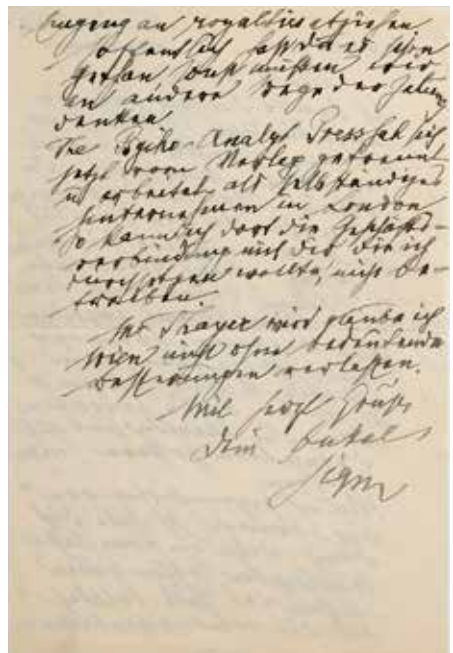 Eingang an royalties abziehen
Hoffentlich hast du es schon
getan sonst müßten wir
an andere Wege der Zahlung
denken
The Psycho-Analyt Press hat sich
jetzt vom Verlag getrennt
u arbeitet als selbständiges
Unternehmen in London
So kann ich dort die Geschäfts-
verbindung mit dir die ich
durchsetzen wollte, nicht be-
treiben.
Mr Thayer wird glaube ich
Wien nicht ohne bedeutende
Besserungen verlassen.
Mit herzl Gruß
Dein Onkel
Sigm